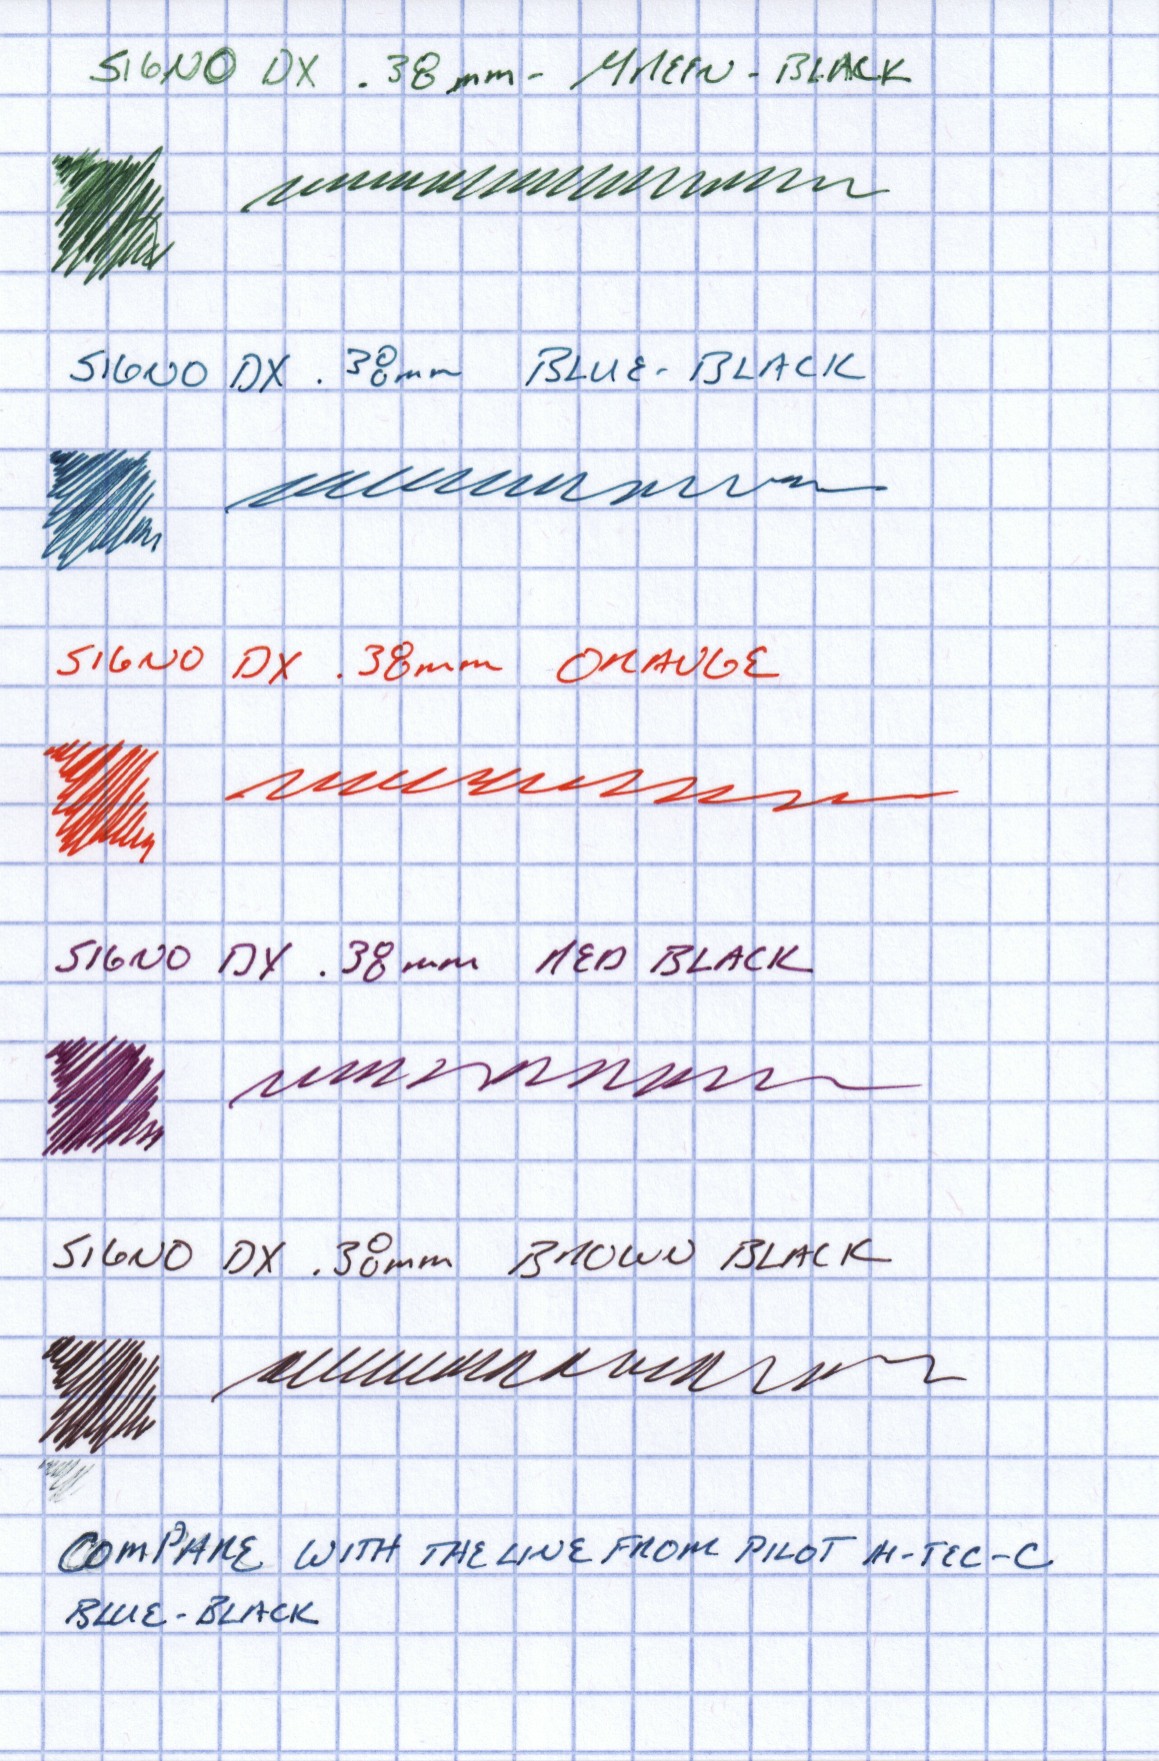 SIGNO DX .38mm - GREEN-BLACK
SIGNO DX .38mm BLUE-BLACK
SIGNO DX .38mm ORANGE
SIGNO DX .38mm RED BLACK
SIGNO DX .38mm BROWN BLACK
COMPARE WITH THE LINE FROM PILOT HI-TEC-C
BLUE-BLACK